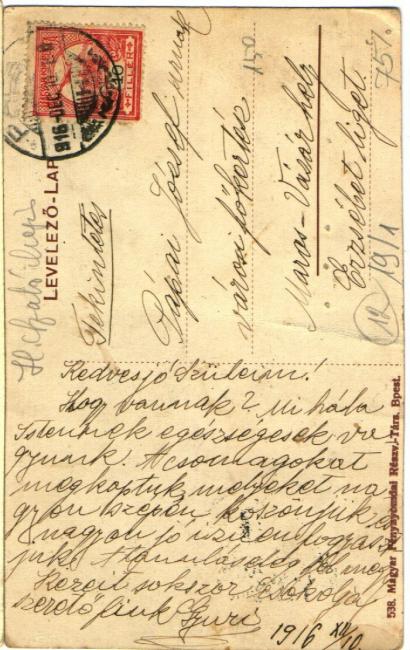 LEVELEZŐ-LAP
Tekintetes
Pápai József urnak
városi főkertész
Maros-Vásárhely
Erzsébet liget
150
75%
12
19/1
FILLÉR
Kedves jó Szüleim!
Hogy vannak? Mi hála
Istennek egészségesek va
gyunk. A csomagokat
megkaptuk, melyeket na
gyon szépen köszönjük és
nagyon jó izüen fogyasz
juk. A tanulás elég jól megy
Kezeit sokszor csókolja
szerető fiuk Gyuri
1916 XII/10.
538. Magyar Fénynyomdai Részv.-Társ. Bpest.